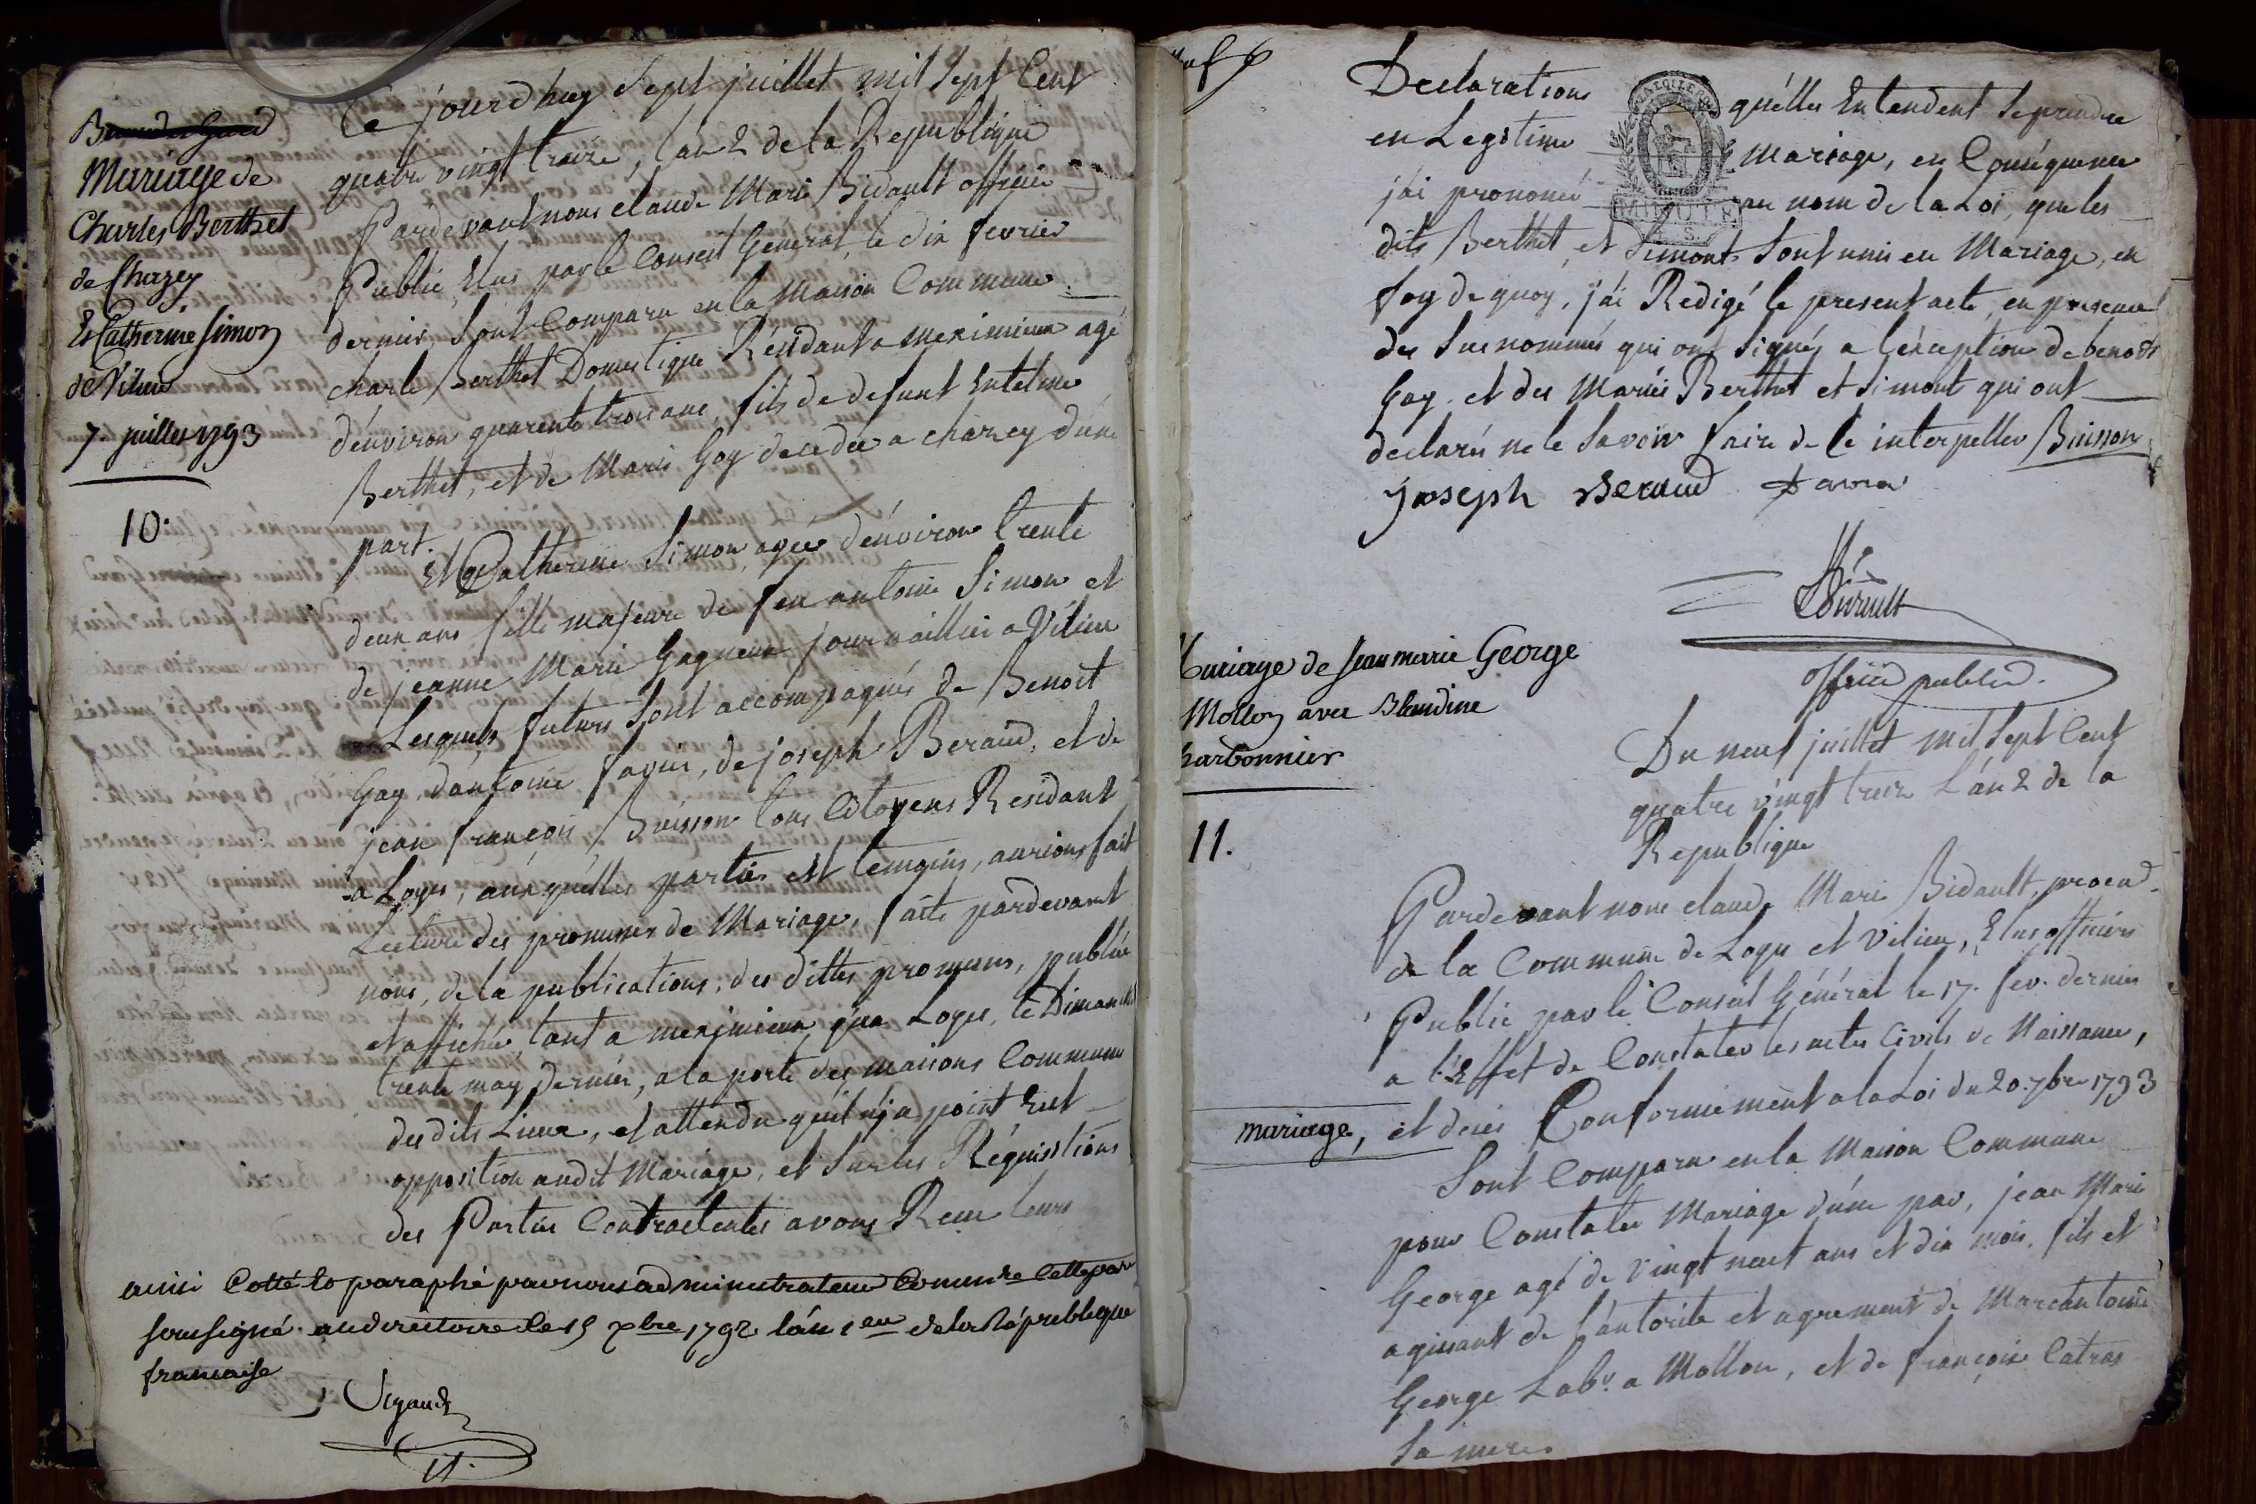 Mariage de
Charles Berthet
de Charzey
Et Catherine Simon
de Vilieu
7. juillet 1793
10.
Ce jourd'huy Sept juillet mil Sept Cent
quatre vingt treize, l'an 2 de la Republique
Pardevant nous claude Marie Bidault officier
Public Elus par le Conseil General, le dix fevrier
dernier, Sont Comparu en la Maison Commune
charle Berthet Domestique Résidant a meximieux agé
d'environ quarente trois ans, fils de defunt Entelme
Berthet, et de Marie Goy decedée a charzey d'une
part.
Et Catherine Simon, agée d'environ trente
deux ans fille majeure de feu antoine Simon et
de jeanne Marie Gagneux journaillier a Vilieu
Lesquels futurs Sont accompagnés de Benoit
Goy, d'antoine favier, de joseph Beraud, et de
jean françois Buisson tous Citoyens Residant
a Loyes, auxquelles parties et temoins, aurions fait
Lecture des promesses de Mariage, faite pardevant
nous, de la publications, des dittes promesses, publiée
et affichée, tant a meximieux, qu'a Loyes, le Dimanche
trente may dernier, a la porte des maisons Commune
des dits Lieux, et attendu qu'il n'ja point Eut
opposition audit Mariage, et Sur les Réquisitions
des Parties Contractentes avons Recu leurs
ainsi Cotté to paraphé par nous administrateur Commre
soussigné au directoire le 15 xbre 1792 l'an 1er de la République
francaise
Declarations qu'elles Entendent Se prendre
en Legitime Mariage, en Conséquence
j'ai prononcé au nom de la Loi, que les
dits Berthet, et Simont Sont unis en Mariage, en
foy de quoy, j'ai Redigé le present acte, en presence
des Susnommés qui ont Signés a l'exception de benoit
Goy, et des Mariés Berthet et Simont qui ont
declarés ne le Savoir faire de ce interpellés Buisson
joseph Beraud
Officier public.
Mariage de Jean marie George
Mollon avec Blandine
harbonnier
11.
Du neuf juillet mil Sept Cent
quatre vingt treize L'an 2 de la
Republique
Pardevant nous claude Marie Bidault, procur.
de la Commune de Loyes et Vilieu, Elus officiers
Public par le Conseil Général le 17. fev. dernier
a l'Effet de Constater les actes Civils de Naissance,
mariage, et decès Conformement a la Loi du 20. 7bre 1793
Sont Comparu en la Maison Commune
pour Constater Mariage d'une par, jean Marie
George agé de vingt neuf ans et dix mois, fils et
agissant de l'autorite et agrement de Marcantoine
George Labr. a Mollon, et de françoise Catras
Sa mere